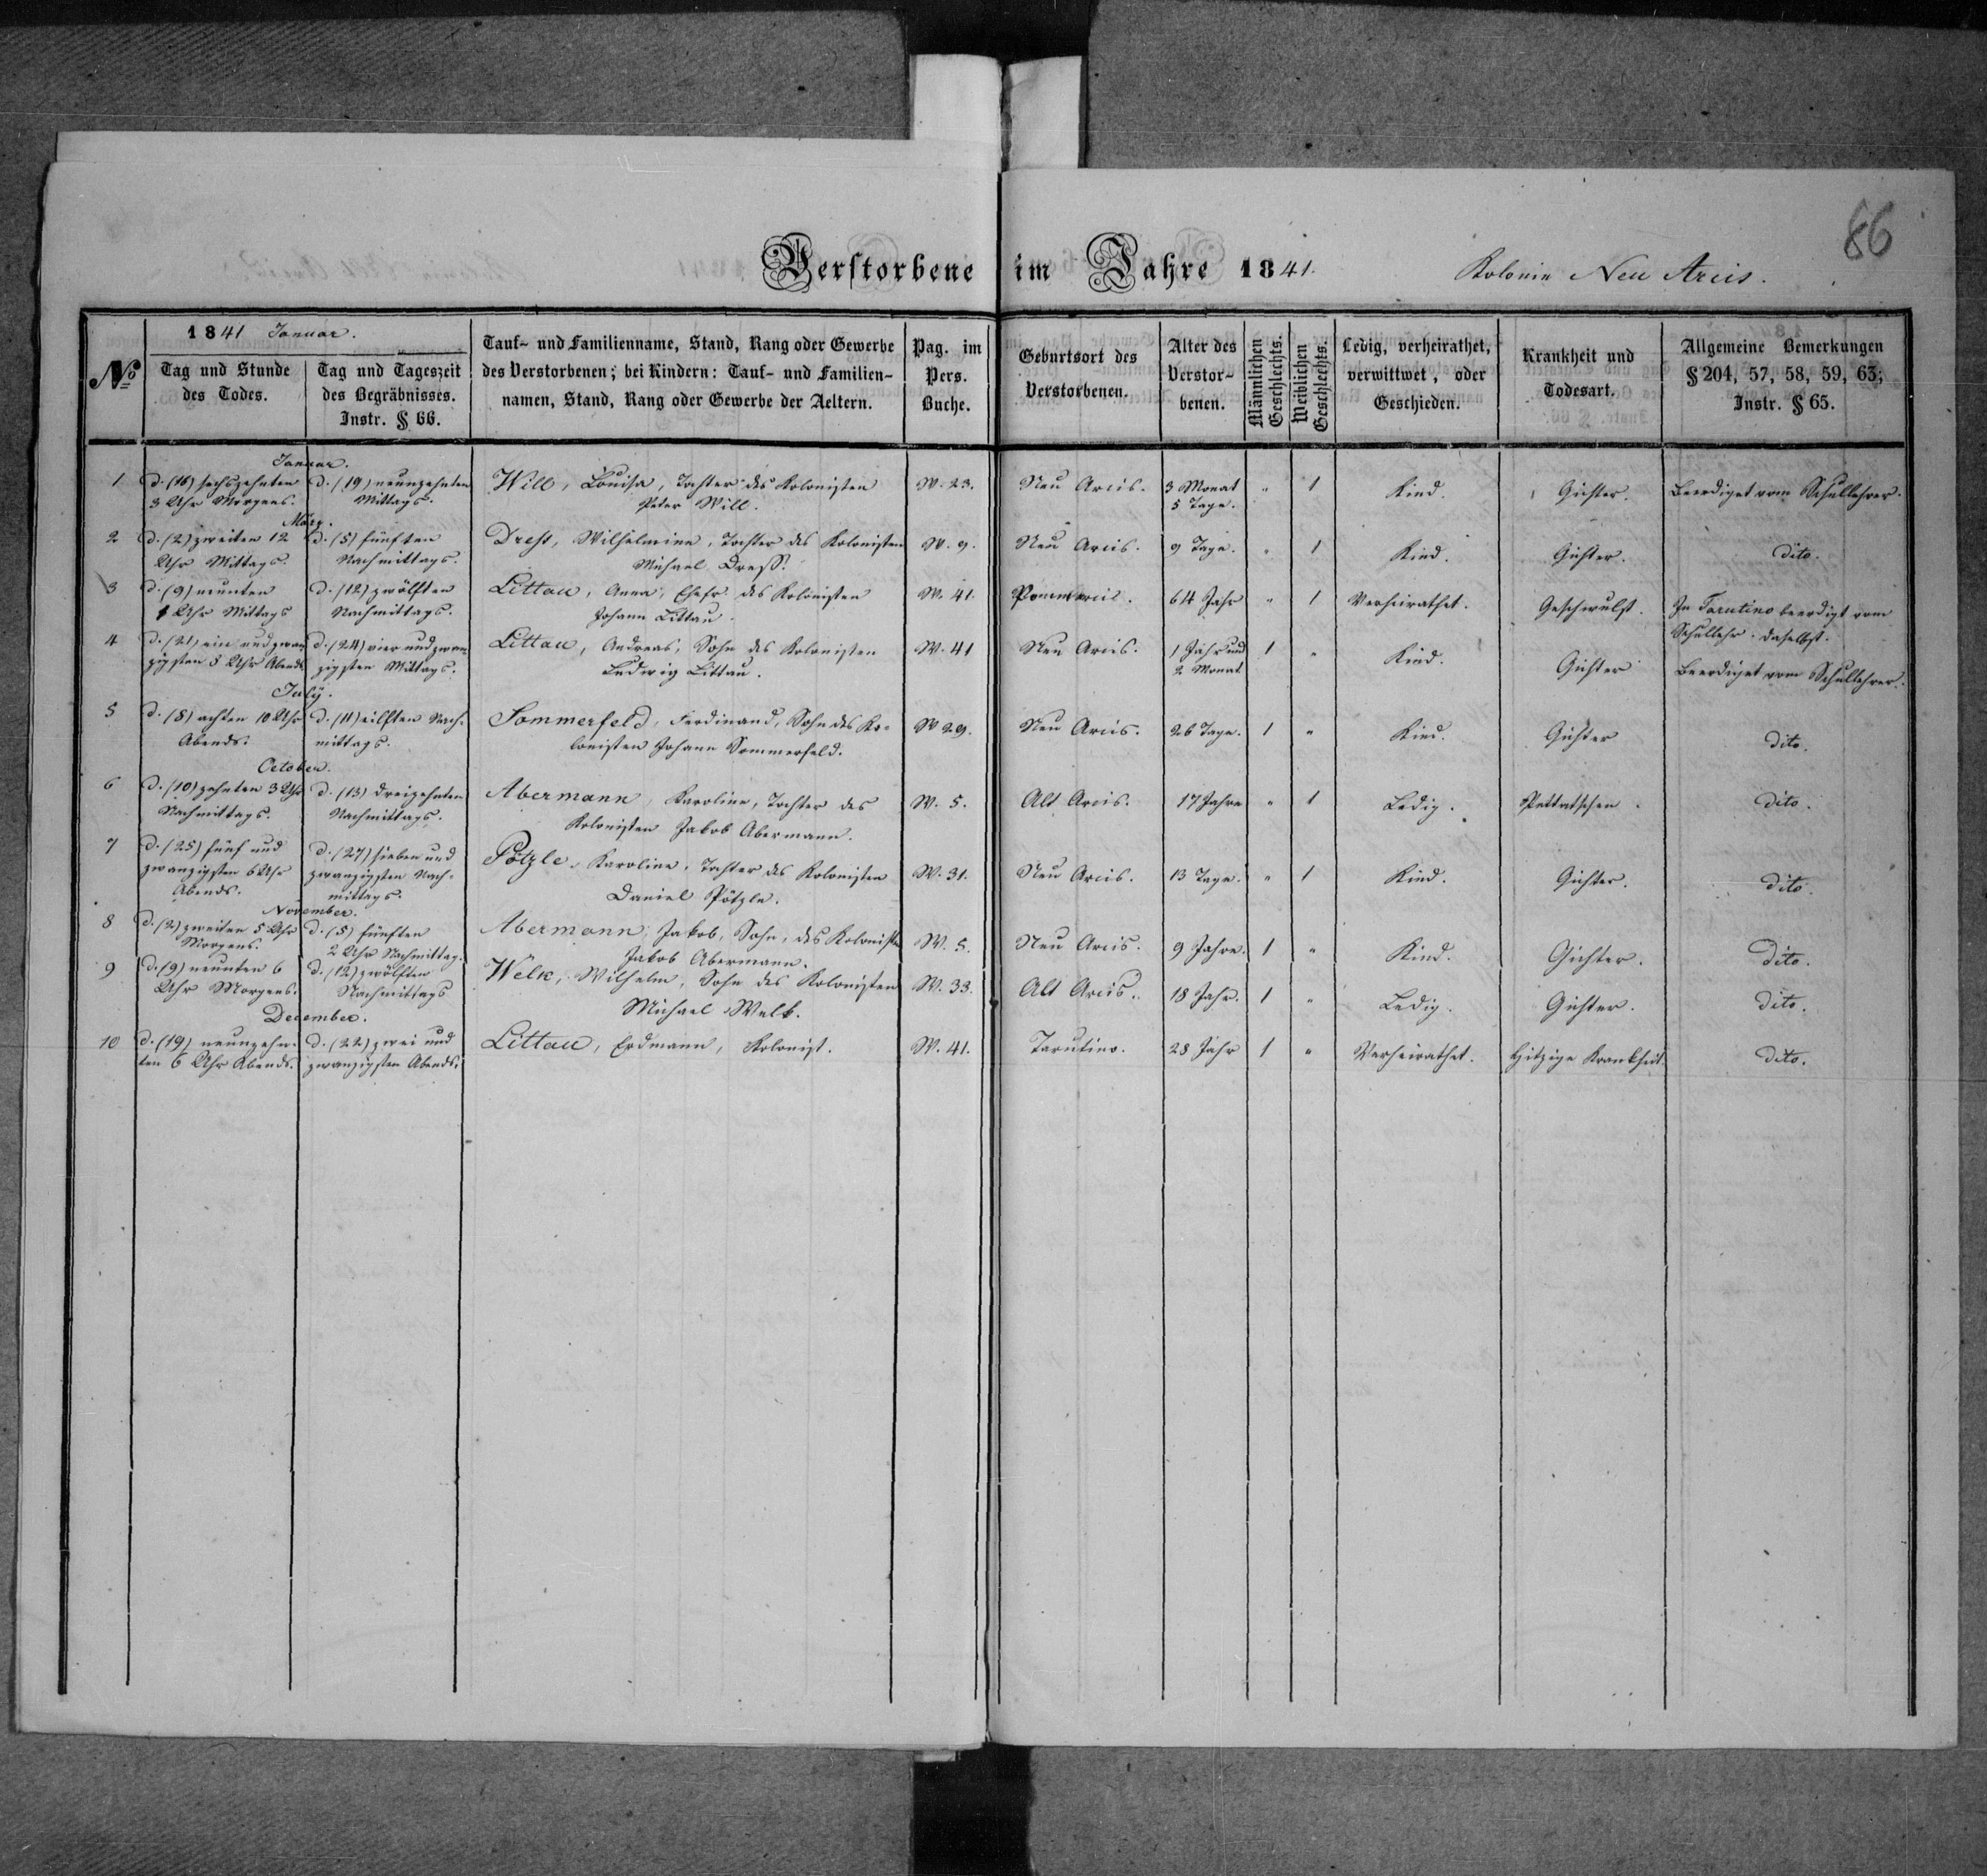 86
Verstorbene im Jahre 1841. Kolonie Neu Arcis.
1841 Januar.
№ Tag und Stunde des Todes. Tag und Tageszeit des Begräbnisses. Instr. § 66. Tauf- und Familienname, Stand, Rang oder Gewerbe des Verstorbenen; bei Kindern: Tauf- und Familiennamen, Stand, Rang oder Gewerbe der Aeltern. Pag. im Pers. Buche. Geburtsort des Verstorbenen. Alter des Verstorbenen. Männlichen Geschlechts. Weiblichen Geschlechts. Ledig, verheirathet, verwittwet, oder Geschieden. Krankheit und Todesart. Allgemeine Bemerkungen § 204, 57, 58, 59, 63; Instr. § 65.
Januar.
1 d. (16) sechszehnten d. (19) neunzehnten Will, Louisa, Tochter des Kolonisten W. 23. Neu Arcis. 3 Monat " 1 Kind. Gichter. Beerdiget vom Schullehrer.
3 Uhr Morgens. Mittags. Peter Will. 5 Tage.
März.
2 d. (2) zweiten 12 d. (5) fünften Dreß, Wilhelmine, Tochter des Kolonisten W. 9. Neu Arcis. 9 Tage. " 1 Kind. Gichter. dito.
Uhr Mittags. Nachmittags. Michael Dreß.
3 d. (9) neunten d. (12) zwölften Littau, Anna, Ehefr. des Kolonisten W. 41. 64 Jahr " 1 Verheirathet. Geschwulst. In Tarutino beerdigt vom
1 Uhr Mittags Nachmittags. Johann Littau. Schullehr. daselbst.
4 d. (21) ein und zwan d. (24) vier und zwan Littau, Andreas, Sohn des Kolonisten W. 41 Neu Arcis. 1 Jahr und 1 " Kind. Gichter Beerdiget vom Schullehrer.
zigsten 5 Uhr Abends zigsten Mittags. Ludwig Littau. 2 Monat
July.
5 d. (8) achten 10 Uhr d. (11) eilften Nach- Sommerfeld, Ferdinand, Sohn des Ko- W 29. Neu Arcis. 26 Tage. 1 " Kind. Gichter dito.
Abends. mittags. lonisten Johann Sommerfeld.
October.
6 d. (10) zehnten 3 Uhr d. (13) dreizehnten Abermann, Karoline, Tochter des W. 5. Alt Arcis. 17 Jahre " 1 Ledig. dito.
Nachmittags. Nachmittags. Kolonisten Jakob Abermann.
7 d. (25) fünf und d. (27) sieben und Pötzle, Karoline, Tochter des Kolonisten W. 31. Neu Arcis. 13 Tage. " 1 Kind. Gichter. dito.
zwanzigsten 6 Uhr zwanzigsten Nach- Daniel Pötzle.
Abends. mittags.
November.
8 d. (2) zweiten 5 Uhr d. (5) fünften Abermann, Jakob, Sohn, des Kolonisten W. 5. Neu Arcis. 9 Jahre. 1 " Kind. Gichter. dito.
Morgens. 2 Uhr Nachmittag. Jakob Abermann.
9 d. (9) neunten 6 d. (12) zwölften Welk, Wilhelm, Sohn des Kolonisten W. 33. Alt Arcis. 18 Jahr. 1 " Ledig. Gichter. dito.
Uhr Morgens. Nachmittags Michael Welk.
December.
10 d. (19) neunzehn- d. (22) zwei und Littau, Erdmann, Kolonist. W. 41. Tarutino. 28 Jahr 1 " Verheirathet. Hitzige Krankheit. dito.
ten 6 Uhr Abends. zwanzigsten Abends.